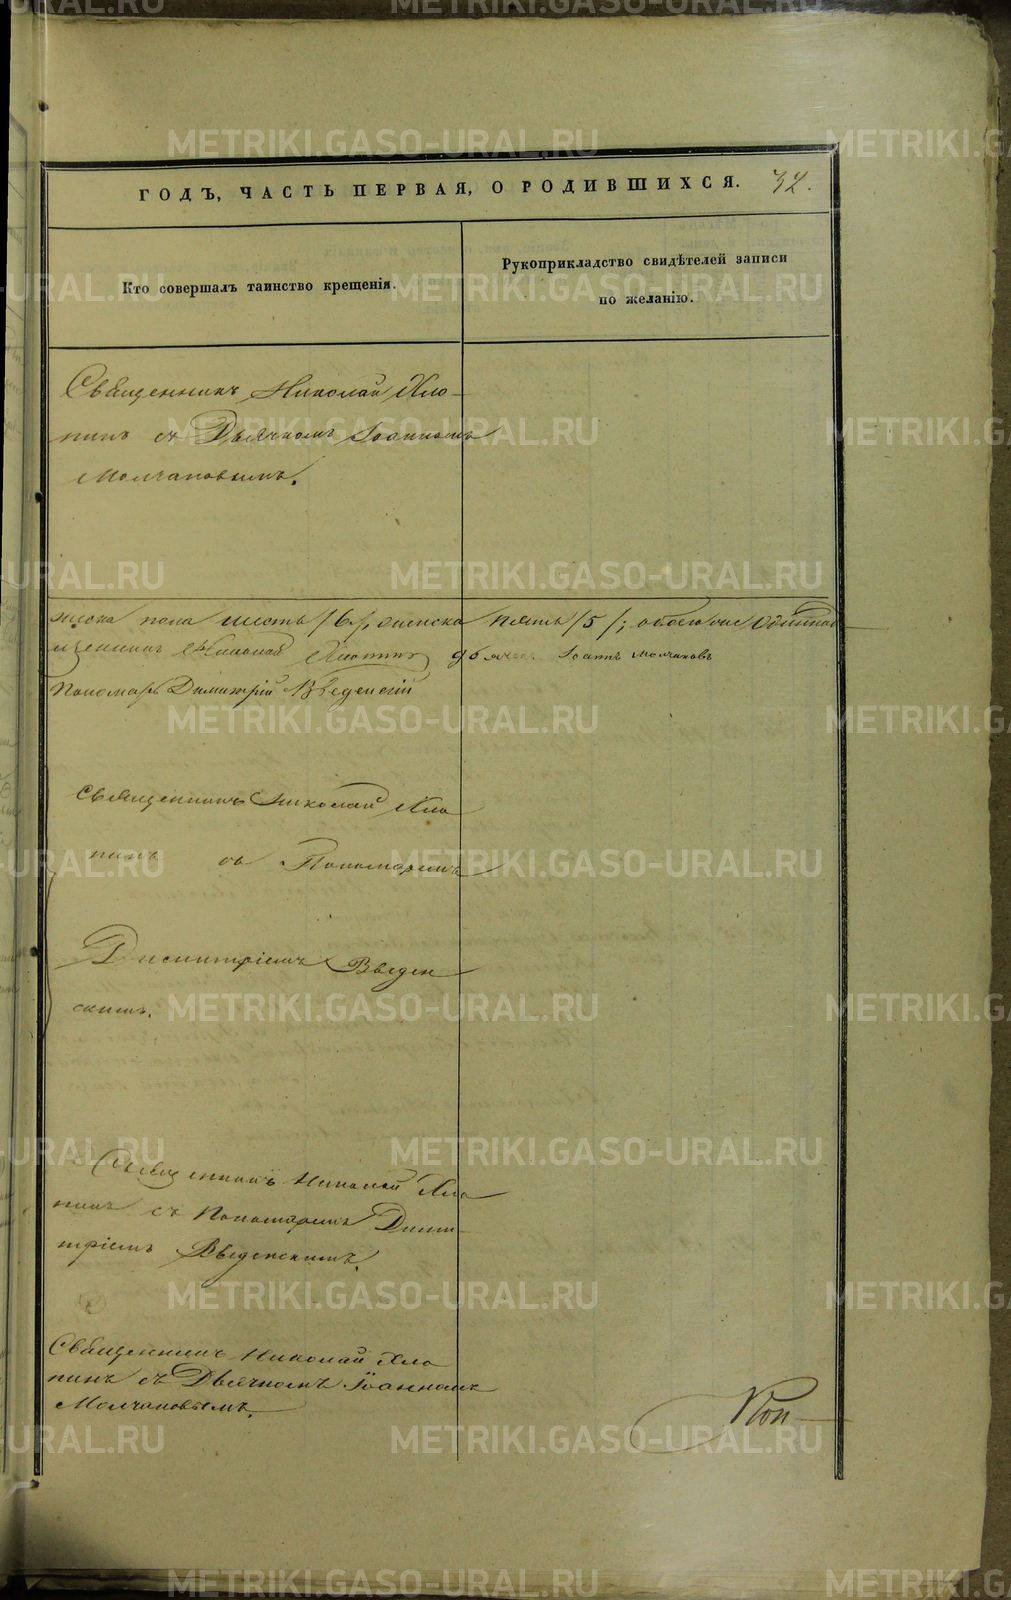 ГОДЪ, ЧАСТЬ ПЕРВАЯ, О РОДИВШИХСЯ. 32.
Кто совершалъ таинство крещенія.
Рукоприкладство свидѣтелей записи
по желанію.
Священникъ Николай Хло-
пинъ съ Дьячкомъ Іоанномъ
Молчановымъ.
жеска пола шесть /6/, женска пять /5/; обоего
щенникъ Николай Хлопинъ дьячекъ Іоаннъ Молчановъ
Пономарь Димитрій Введенскій
Священникъ Николай Хло
пинъ съ Пономаремъ
Димитріемъ Введен
скимъ.
Священникъ Николай Хло
пинъ съ Пономаремъ Дими-
тріемъ Введенскимъ.
Священникъ Николай Хло
пинъ съ Дьячкомъ Іоанномъ
Молчановымъ.
METRIKI.GASO-URAL.RU